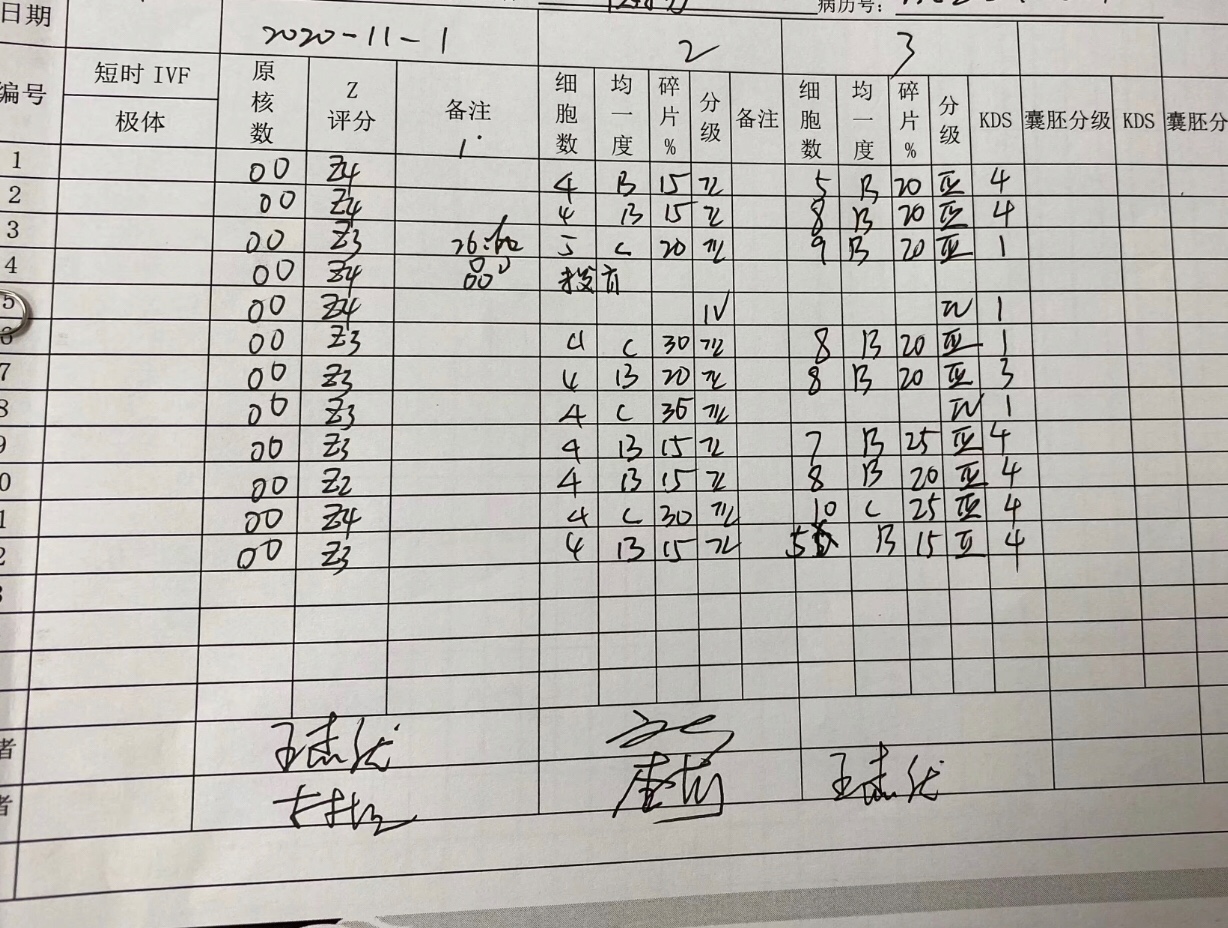 日期 2020-11-1 2 3
病历号:
编号 短时 IVF 极体 原核数 Z评分 备注 细胞数 均一度 碎片% 分级 备注 细胞数 均一度 碎片% 分级 KDS 囊胚分级 KDS 囊胚分
1 00 Z4 4 B 15 II 5 B 20 III 4
2 00 Z4 4 B 15 II 8 B 20 III 4
3 00 Z3 5 C 20 III 9 B 20 III 1
4 00 Z4 00
5 00 Z4 IV IV 1
6 00 Z3 4 C 30 III 8 B 20 III 1
7 00 Z3 4 B 20 8 B 20 III 3
8 00 Z3 4 C III IV 1
9 00 Z3 4 B 15 II 7 B 25 III 4
0 00 Z2 4 B 15 II 8 B 20 III 4
1 00 Z4 4 C 30 III 10 C 25 III 4
2 00 Z3 4 B 15 II 5 B 15 4
者
者